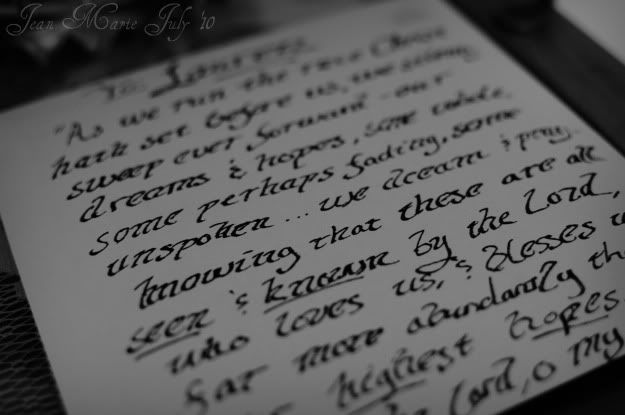 Jean Marie July '10
To
"As we run the race Christ
hath set before us, we
sweep ever forward - our
dreams & hopes, some
some perhaps fading, some
unspoken... we dream & pray
knowing that these are all
seen & known by the Lord,
who loves us, & blesses u
far more abundantly tha
highest hopes.
Lord, O my